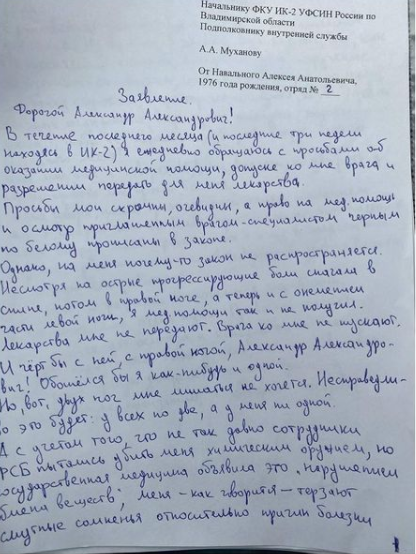 Начальнику ФКУ ИК-2 УФСИН России по
Владимирской области
Подполковнику внутренней службы
А.А. Муханову
От Навального Алексея Анатольевича,
1976 года рождения, отряд № 2
Заявление.
Дорогой Александр Александрович!
В течение последнего месяца (и последние три недели
находясь в ИК-2) я ежедневно обращаюсь с просьбами об
оказании медицинской помощи, допуске ко мне врача и
разрешении передать для меня лекарства.
Просьбы мои скромны, очевидны, а право на мед. помощь
и осмотр приглашенным врачом-специалистом черным
по белому прописаны в законе.
Однако, на меня почему-то закон не распространяется.
Несмотря на острые прогрессирующие боли сначала в
спине, потом в правой ноге, а теперь и с онемением
части левой ноги, я мед. помощи так и не получил.
Лекарства мне не передают. Врача ко мне не пускают.
И чёрт бы с ней, с правой ногой, Александр Александро-
вич! Обошёлся бы я как-нибудь и одной.
Но, вот, двух ног мне лишаться не хочется. Несправедли-
во это будет: у всех по две, а у меня ни одной.
А с учетом того, что не так давно сотрудники
ФСБ пытались убить меня химическим оружием, но
государственная медицина объявила это "нарушением
обмена веществ", меня - как говорится - терзают
смутные сомненья относительно причин болезни
1